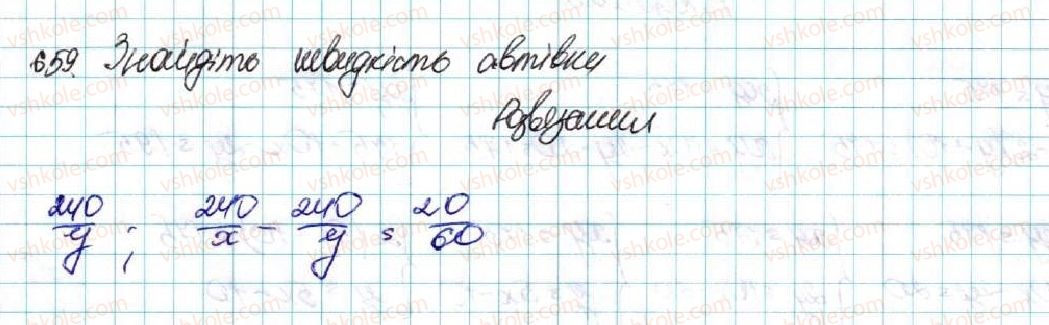 659. Знайдіть швидкість автівки
Розвязання
240/y ; 240/x - 240/y = 20/60